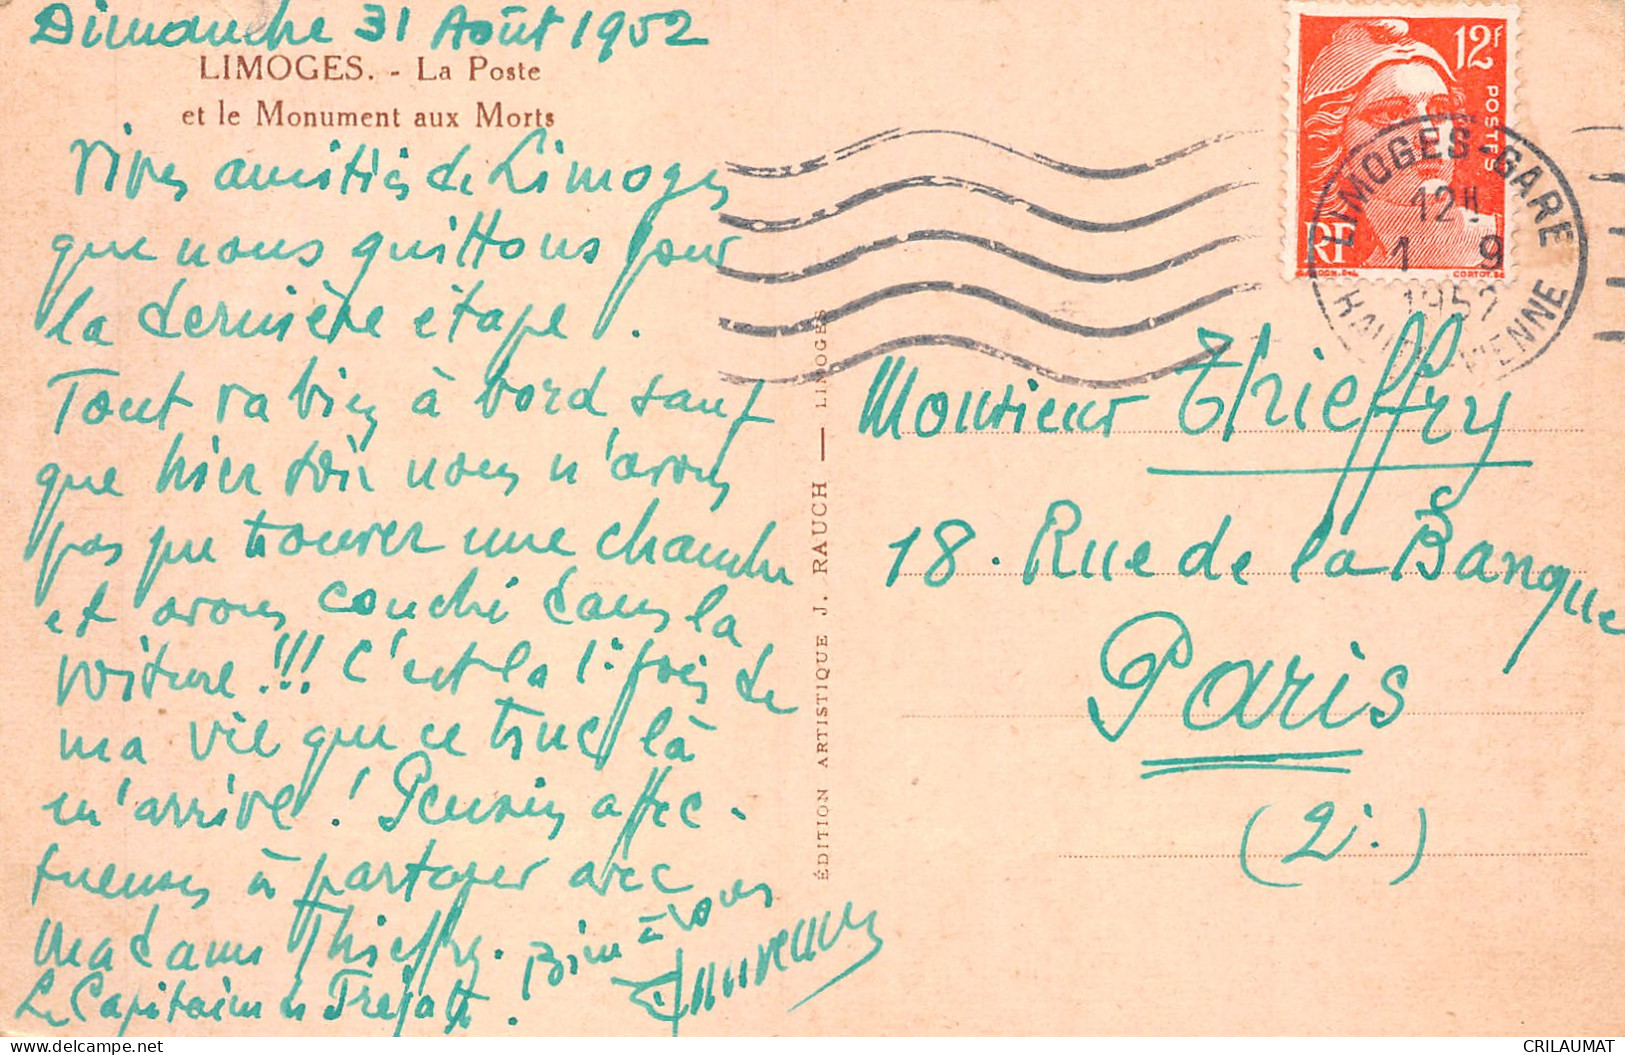 Dimanche 31 Août 1952
LIMOGES. - La Poste
et le Monument aux Morts
Vives amitiés de Limoges
que nous quittons pour
la dernière étape.
Tout va bien à bord sauf
que hier soir nous n'avons
pas pu trouver une chambre
et avons couché dans la
voiture!!! C'est la 1° fois de
ma vie que ce truc là
m'arrive! Pensées affec-
tueuses à partager avec
Madame Thieffry. Bien à vous
Le Capitaine de
ÉDITION ARTISTIQUE J. RAUCH — LIMOGES
12F
POSTES
RF
CORTOT.SC
LIMOGES-GARE
12H
1 9
1952
HAUTE-VIENNE
Monsieur Thieffry
18. Rue de la Banque
Paris
(2°.)
delcampe.net
CRILAUMAT